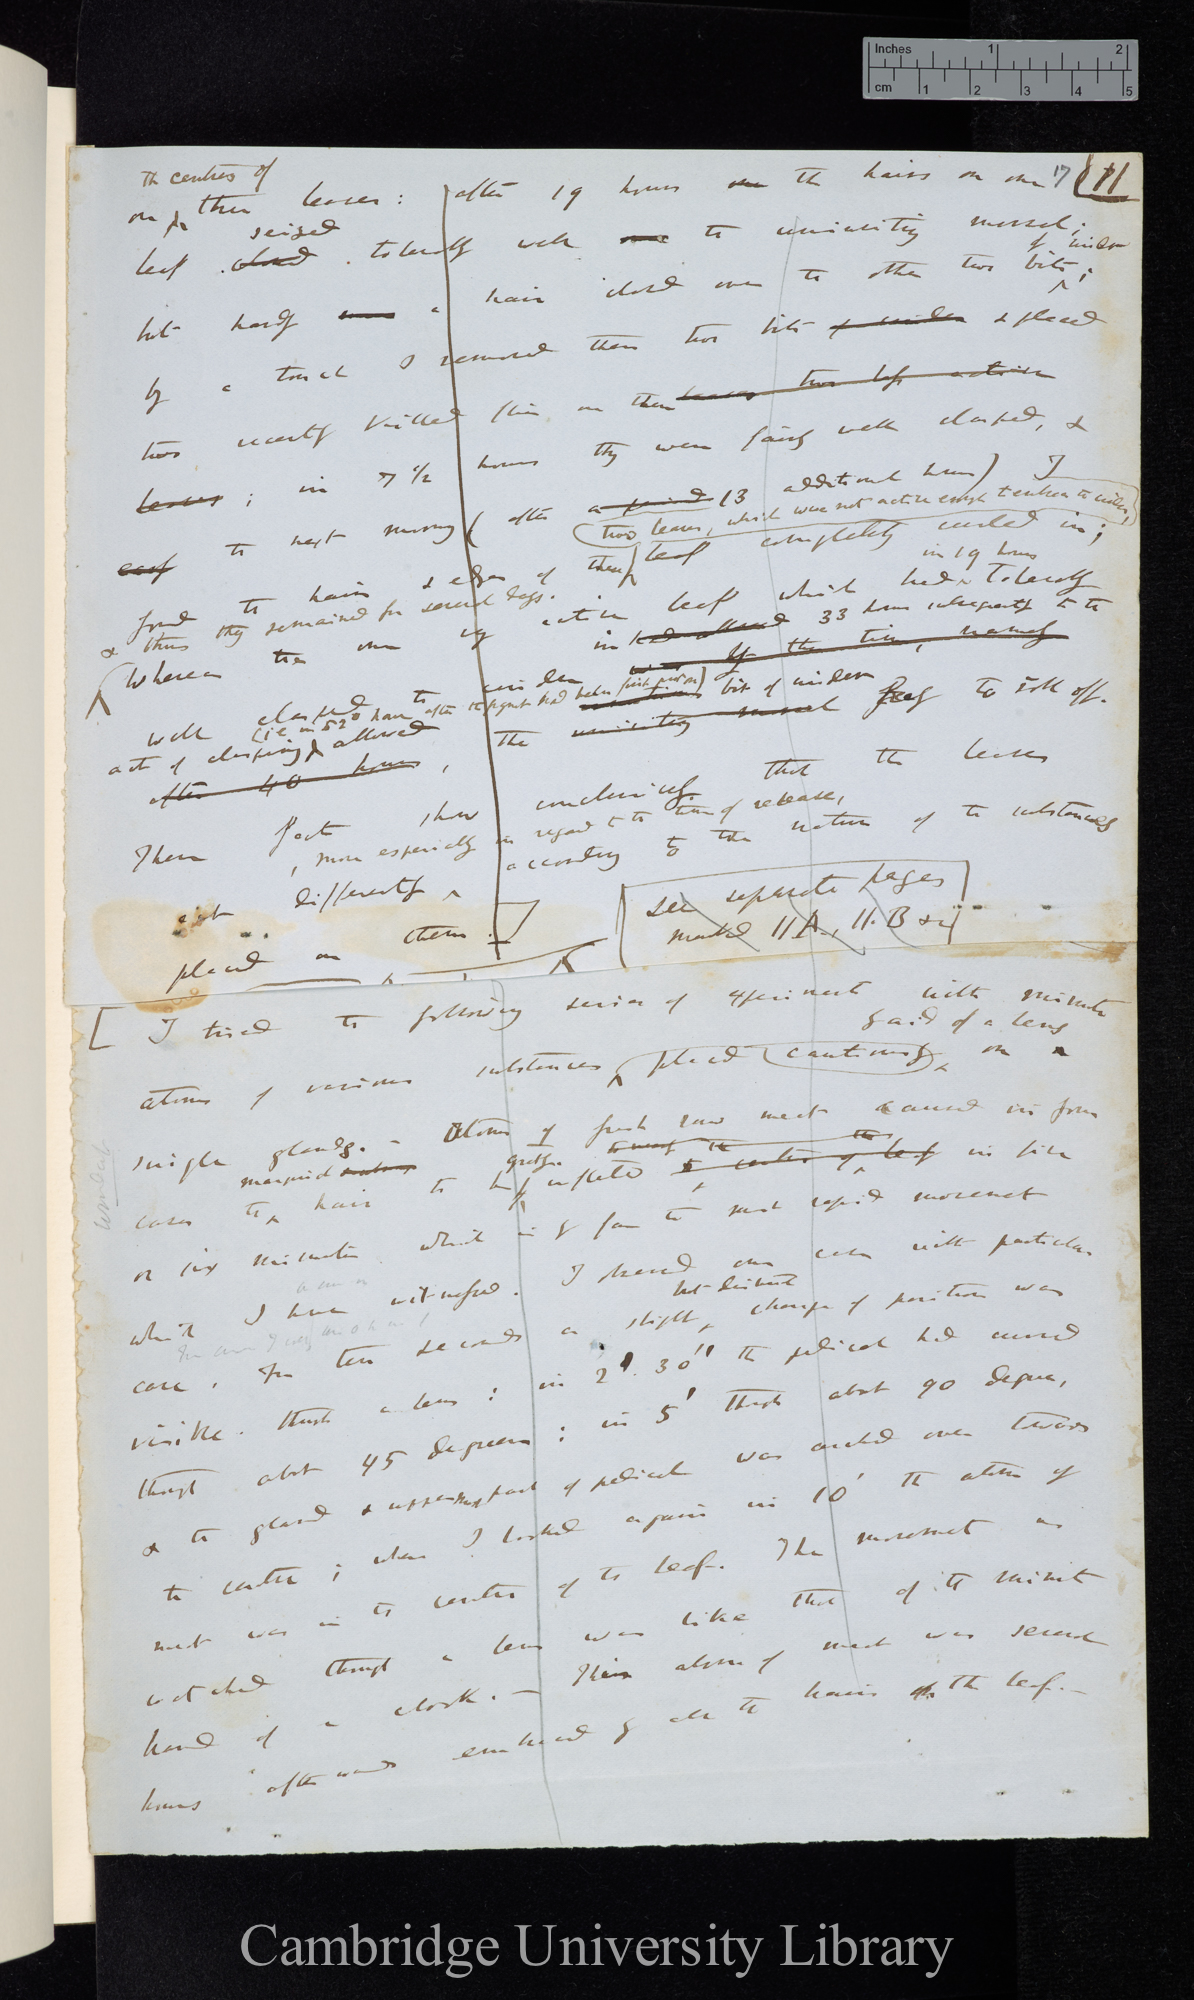 Inches 1 2
cm 1 2 3 4 5
17 11
the centres of
on three leaves: after 19 hours the hairs on one
seized
leaf closed tolerably well the uninviting morsel;
of cinder
but hardly a hair closed over the other two bits;
by a touch I removed these two bits of cinder & placed
two recently killed flies on them leaves
leaves; in 7 1/2 hours they were fairly well clasped, &
the next morning (after 13 additional hours) I
two leaves, which were not active enough to enclose the cinder,
found the hairs & edges of these leaf completely curled in;
& thus they remained for several days.
in 19 hours
Whereas the one very active leaf which had tolerably
in 33 hours subsequently to the
well clasped the cinder
act of clasping allowed the bit of cinder freely to roll off.
after 40 hours
These facts show conclusively that the leaves
, more especially in regard to the time of release,
act differently according to the nature of the substances
placed on them.
see separate pages
marked 11A, 11.B &c
I tried the following series of experiments with minute
& aid of a lens
atoms of various substances placed cautiously on
single glands. – Atoms of fresh raw meat caused in four
marginal
cases the hair to be greatly inflected in five
or six minutes which is by far the most rapid movement
which I have witnessed. I observed one case with particular
but distinct
care. In ten seconds a slight change of position was
visible through a lens: in 2'. 30" the pedicel had curved
through about 45 degrees: in 5' through about 90 degrees,
& the gland & uppermost part of pedicel was arched over towards
the centre; when I looked again in 10' the atom of
meat was in the centre of the leaf. The movement as
watched through a lens was like that of the minute
hand of a clock. – This atom of meat was several
hours afterwards embraced by all the hairs on the leaf. –
Cambridge University Library